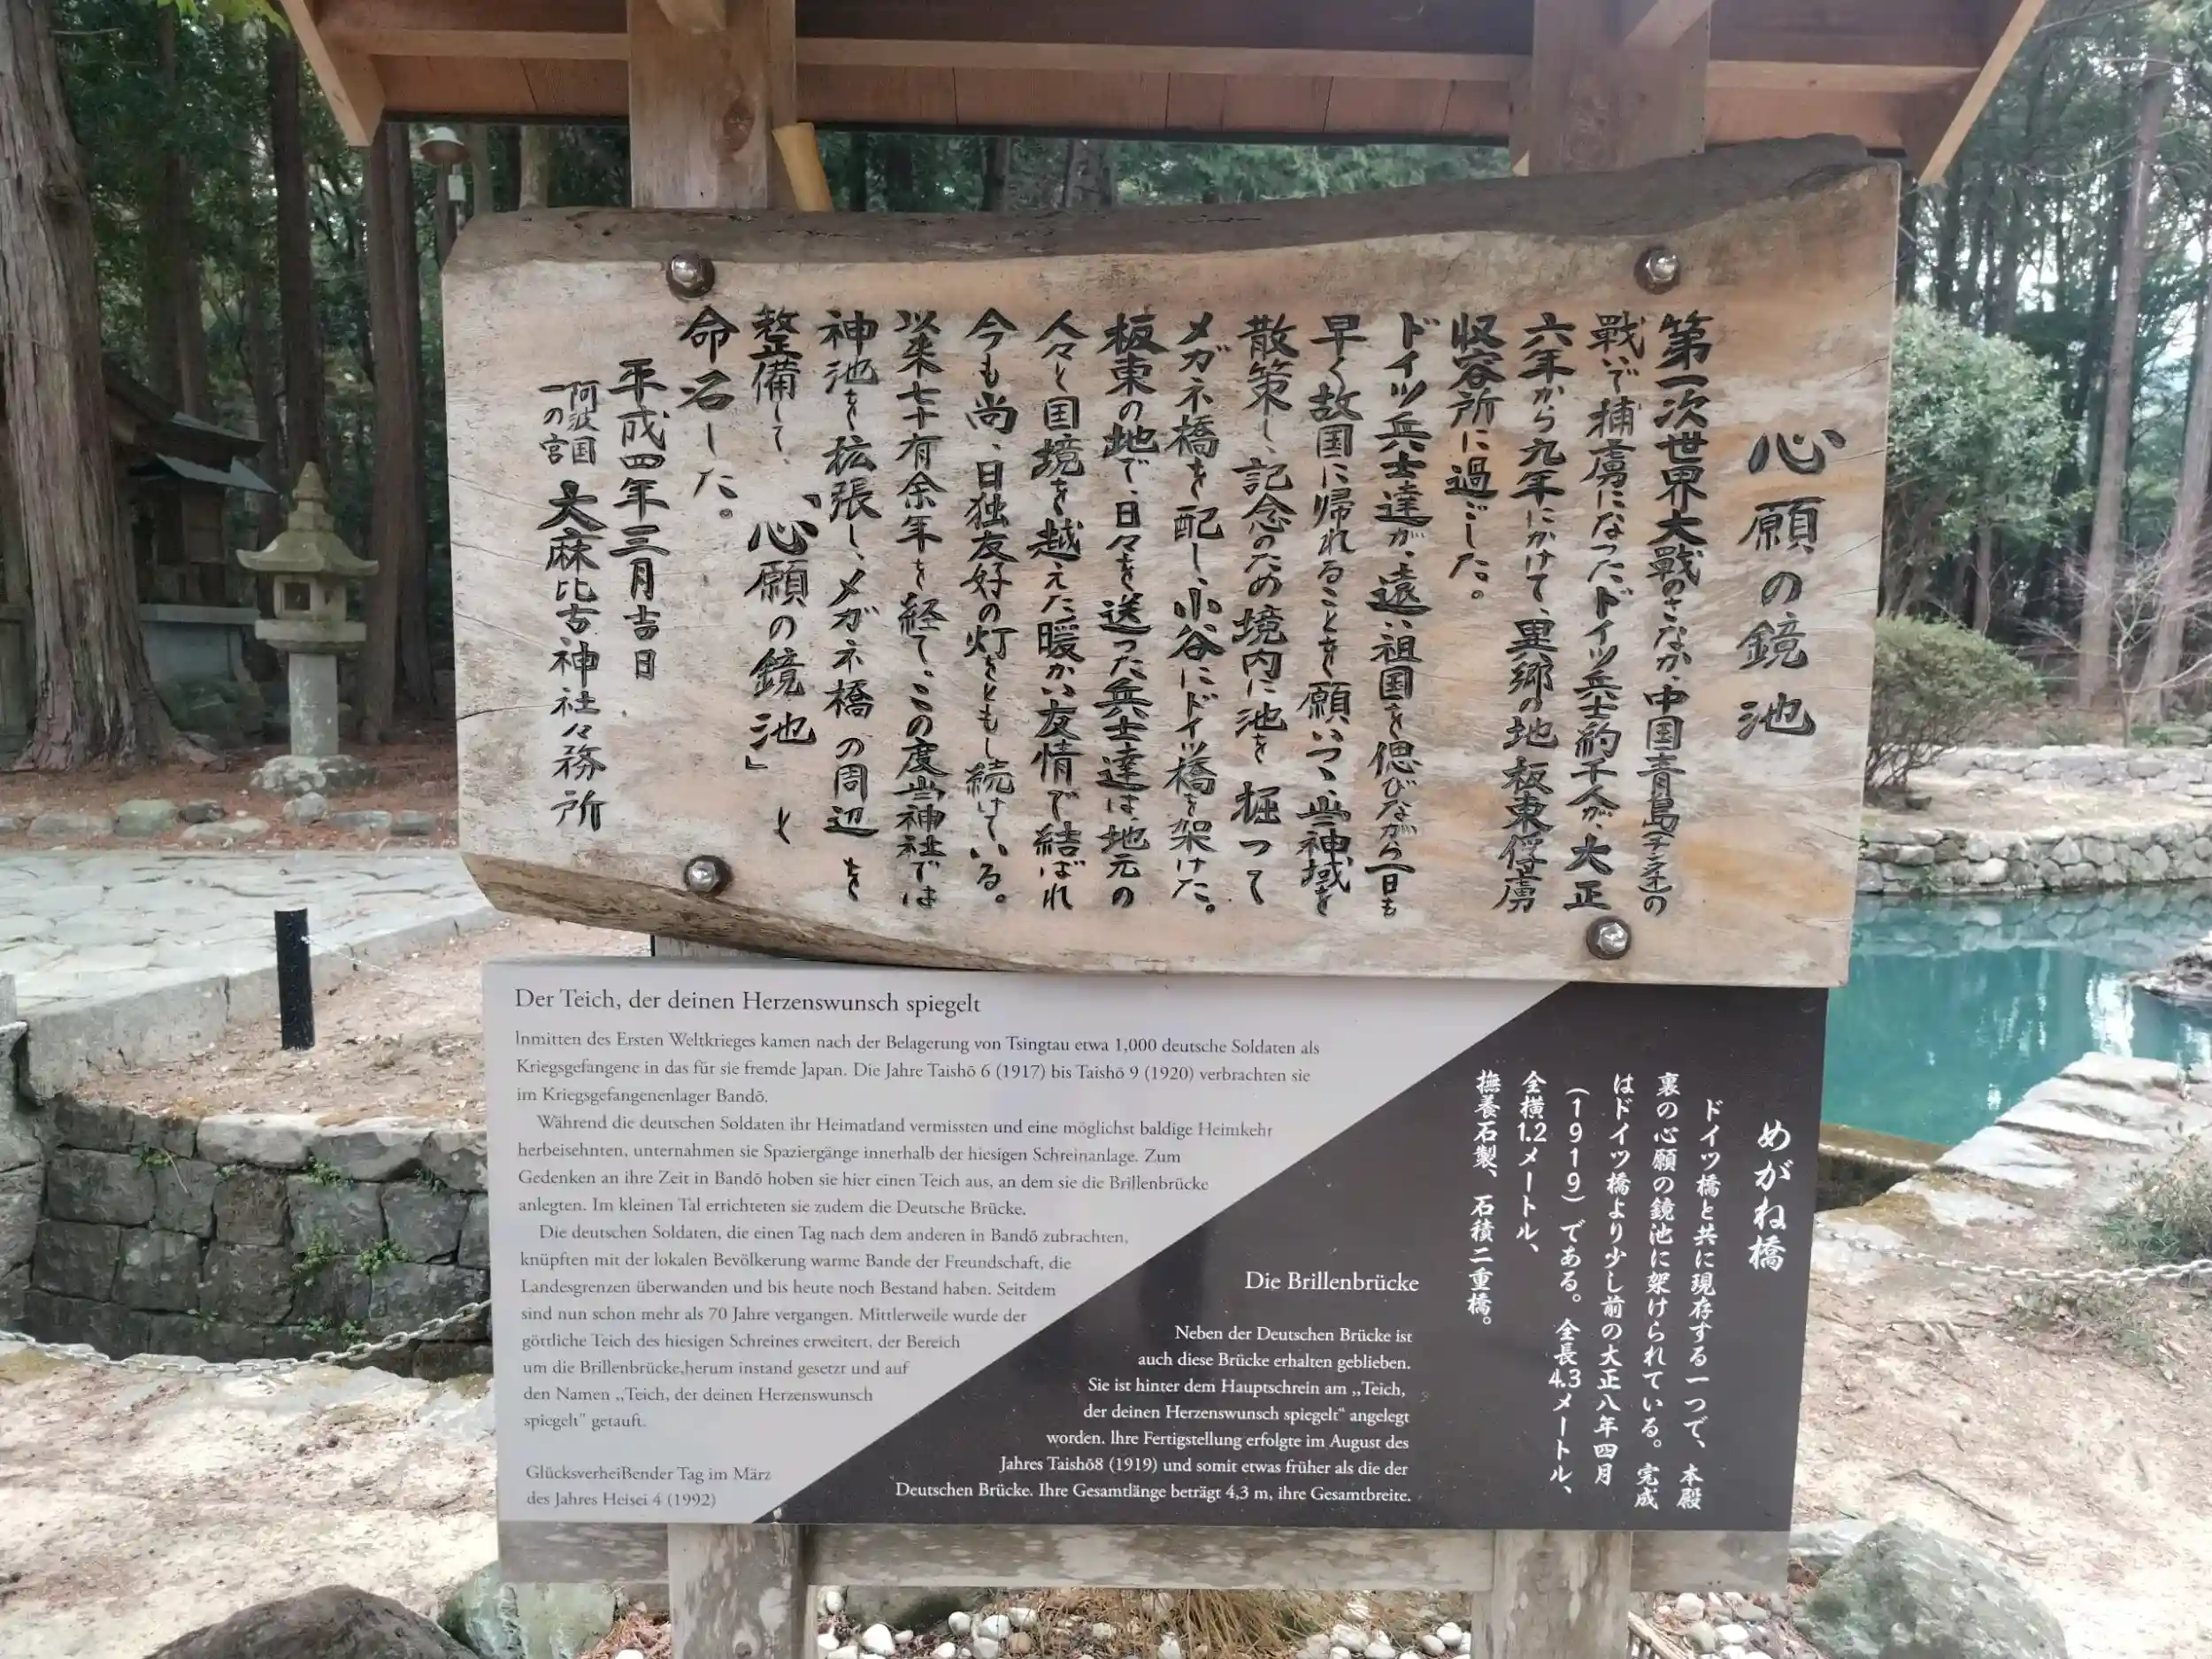 心願の鏡池
第一次世界大戰のさなか、中国青島(チンタオ)の
戰いで捕虜になったドイツ兵士約千人が、大正
六年から九年にかけて、異郷の地板東俘虜
収容所に過ごした。
ドイツ兵士達が、遠い祖国を偲びながら一日も
早く故国に帰れることを願いつゝ、当神域を
散策し、記念のため境内に池を掘って
メガネ橋を配し、小谷にドイツ橋を架けた。
板東の地で、日々を送った兵士達は、地元の
人々と国境を越えた暖かい友情で結ばれ
今も尚、日独友好の灯をともし続けている。
以来七十有余年を経て、この度当神社では
神池を拡張し、メガネ橋の周辺を
整備して、「心願の鏡池」と
命名した。
平成四年三月吉日
阿波国
一の宮
大麻比古神社々務所
Der Teich, der deinen Herzenswunsch spiegelt
Inmitten des Ersten Weltkrieges kamen nach der Belagerung von Tsingtau etwa 1,000 deutsche Soldaten als
Kriegsgefangene in das für sie fremde Japan. Die Jahre Taishō 6 (1917) bis Taishō 9 (1920) verbrachten sie
im Kriegsgefangenenlager Bandō.
Während die deutschen Soldaten ihr Heimatland vermissten und eine möglichst baldige Heimkehr
herbeisehnten, unternahmen sie Spaziergänge innerhalb der hiesigen Schreinanlage. Zum
Gedenken an ihre Zeit in Bandō hoben sie hier einen Teich aus, an dem sie die Brillenbrücke
anlegten. Im kleinen Tal errichteten sie zudem die Deutsche Brücke.
Die deutschen Soldaten, die einen Tag nach dem anderen in Bandō zubrachten,
knüpften mit der lokalen Bevölkerung warme Bande der Freundschaft, die
Landesgrenzen überwanden und bis heute noch Bestand haben. Seitdem
sind nun schon mehr als 70 Jahre vergangen. Mittlerweile wurde der
göttliche Teich des hiesigen Schreines erweitert, der Bereich
um die Brillenbrücke.herum instand gesetzt und auf
den Namen „Teich, der deinen Herzenswunsch
spiegelt" getauft.
Glücksverheißender Tag im März
des Jahres Heisei 4 (1992)
めがね橋
ドイツ橋と共に現存する一つで、本殿
裏の心願の鏡池に架けられている。完成
はドイツ橋より少し前の大正八年四月
(1919)である。全長4.3メートル、
全横1.2メートル、
撫養石製、石積二重橋。
Die Brillenbrücke
Neben der Deutschen Brücke ist
auch diese Brücke erhalten geblieben.
Sie ist hinter dem Hauptschrein am „Teich,
der deinen Herzenswunsch spiegelt“ angelegt
worden. Ihre Fertigstellung erfolgte im August des
Jahres Taishō8 (1919) und somit etwas früher als die der
Deutschen Brücke. Ihre Gesamtlänge beträgt 4,3 m, ihre Gesamtbreite.